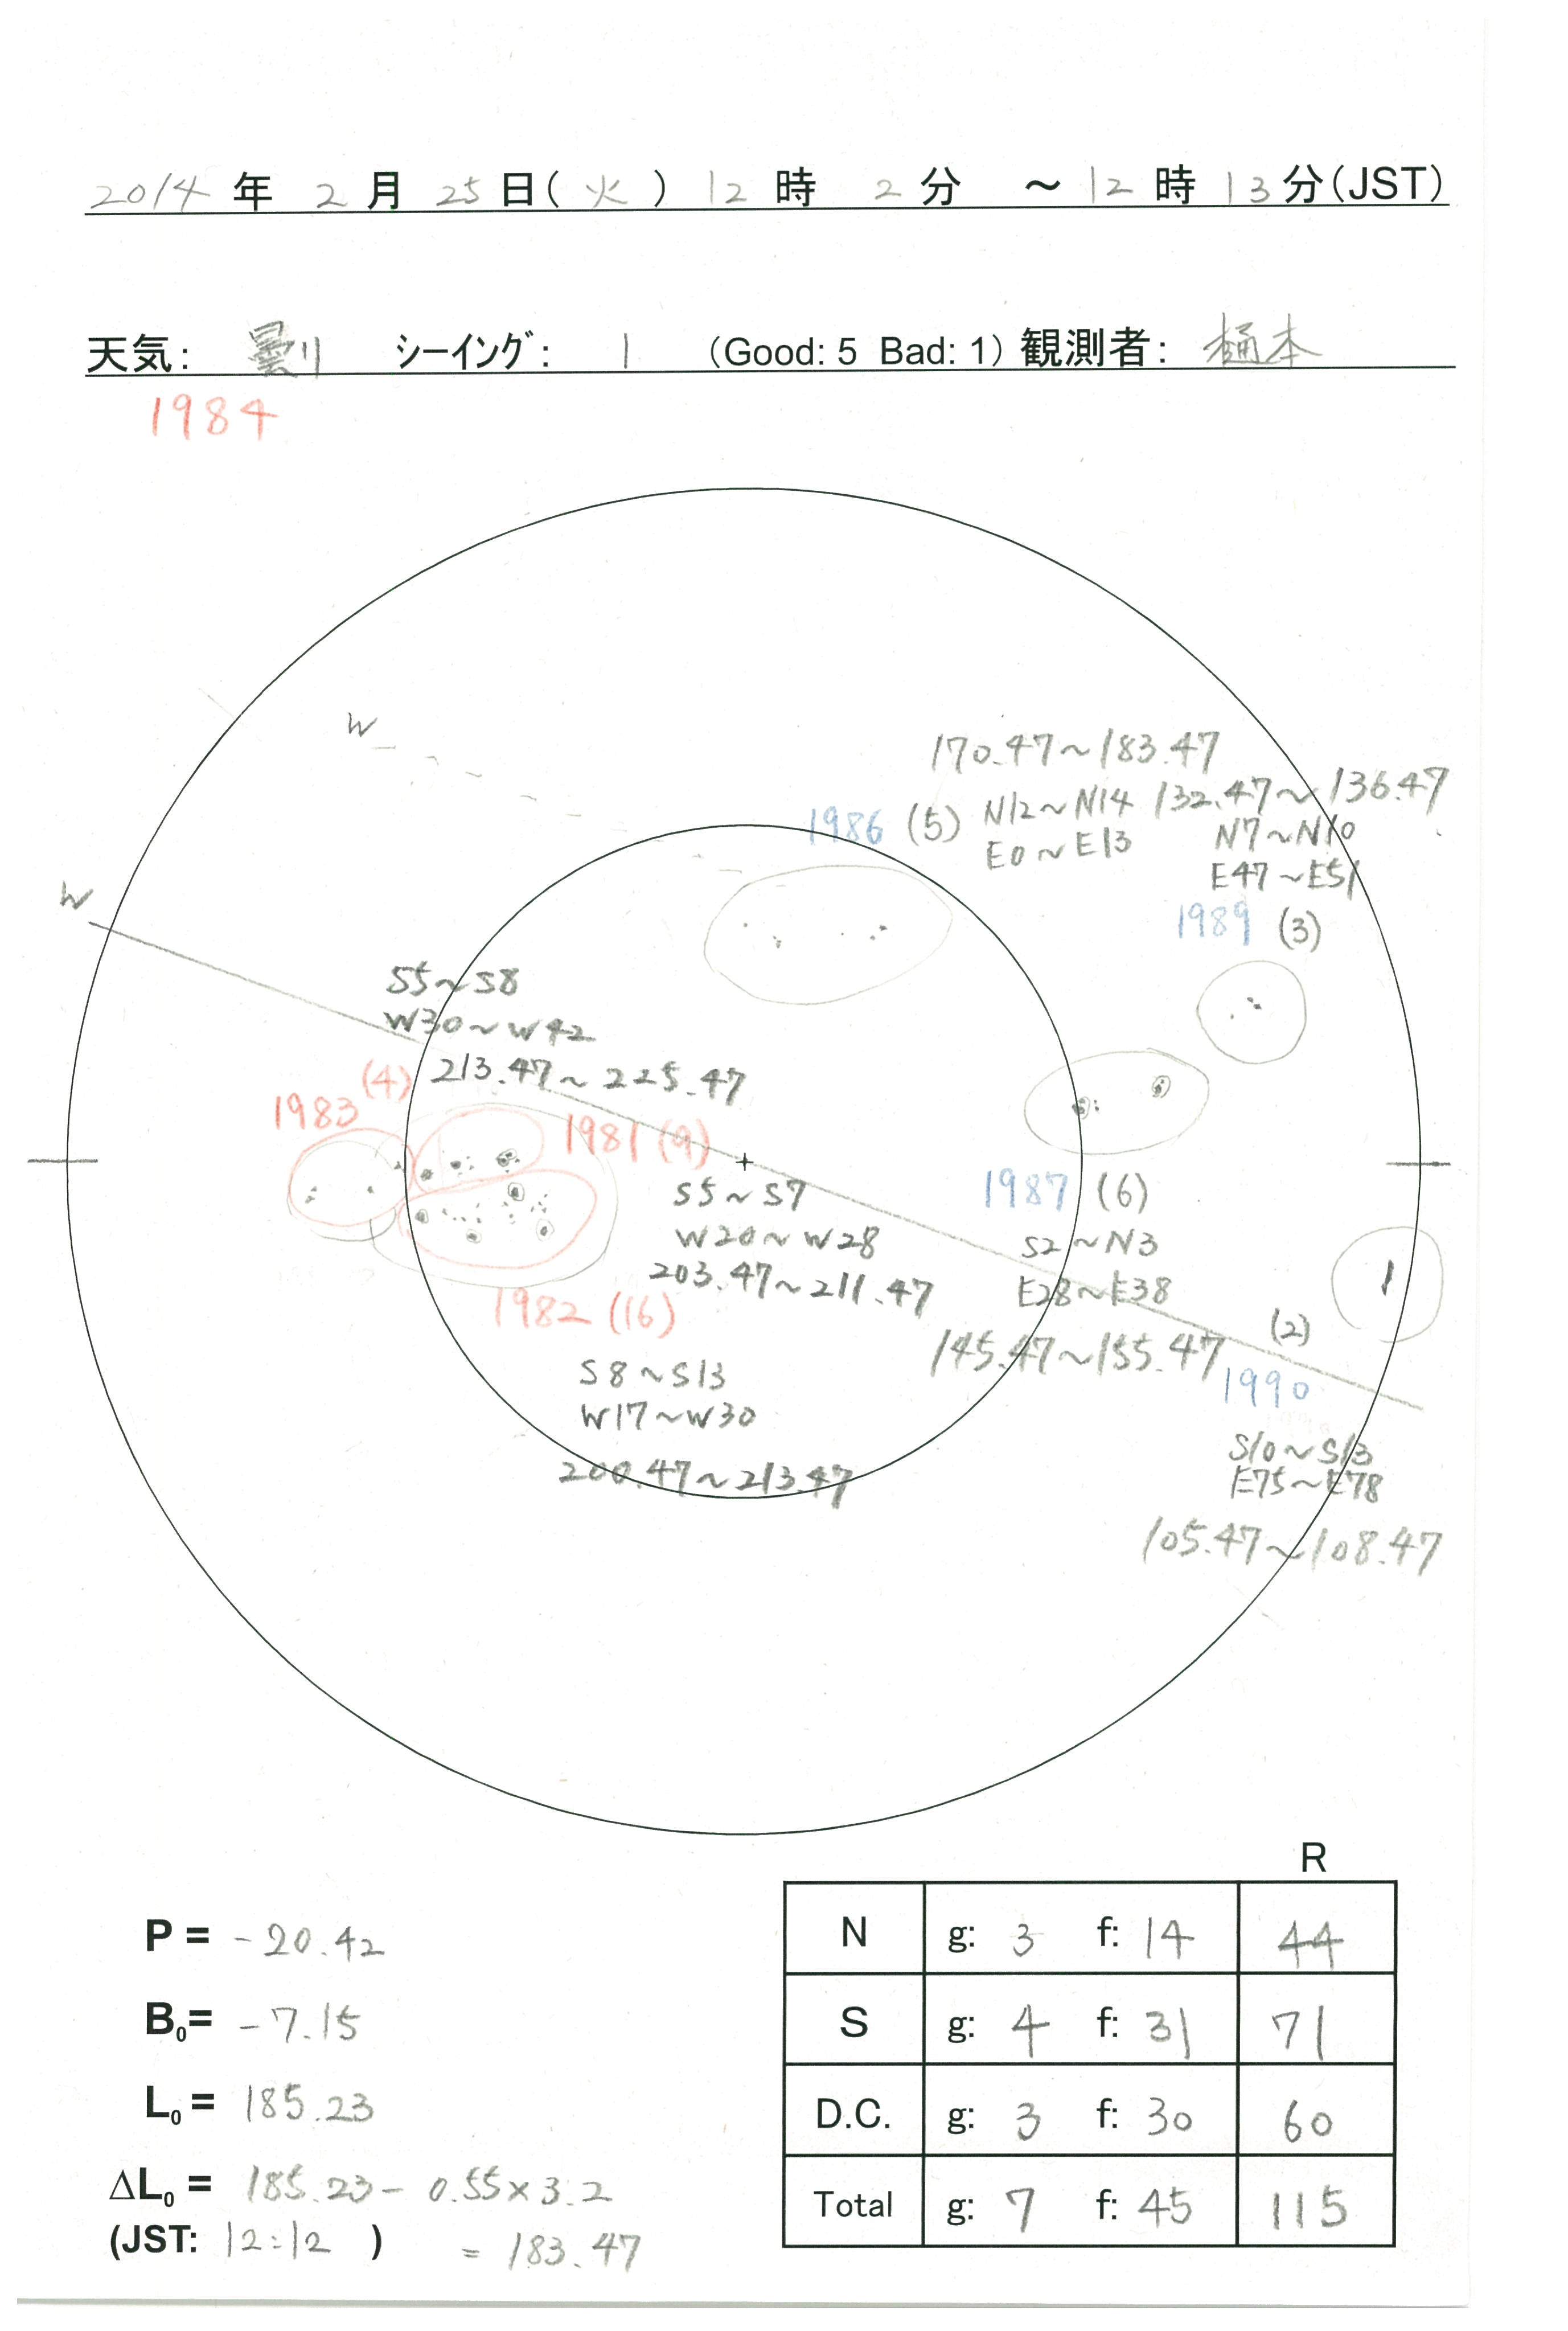 2014 年 2 月 25 日( 火 ) 12 時 2 分 ～ 12 時 13 分(JST)
天気: 曇り シーイング: 1 (Good: 5 Bad: 1) 観測者: 樋本
1984
W
170.47~183.47
1986 (5) N12~N14
E0~E13
132.47~136.47
N7~N10
E47~E51
1989 (3)
W
S5~S8
W30~W42
213.47~225.47
1983 (4)
1981 (9)
S5~S7
W20~W28
203.47~211.47
1987 (6)
S2~N3
E28~E38
145.47~155.47
1982 (16)
S8~S13
W17~W30
200.47~213.47
(2)
1990
S10~S13
E75~E78
105.47~108.47
P = -20.42
B₀= -7.15
L₀ = 185.23
ΔL₀ = 185.23 - 0.55×3.2
(JST: 12:12 ) = 183.47
R
N g: 3 f: 14 44
S g: 4 f: 31 71
D.C. g: 3 f: 30 60
Total g: 7 f: 45 115